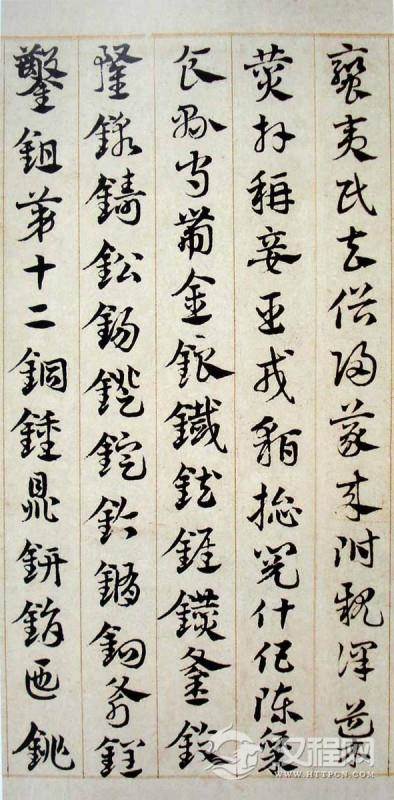 蠻夷民去俗歸義来附親譯導
贊拜稱妾臣戎貊總閱什伍陳稟
食縣官帶金銀鐵鈇錐鑽釜鍑
鑄鈆錫鐙錠鈐鉤斧銍
鑿鉏第十二銅鍾鼎鈃鋗匜銚
汉程网
WWW.HTTPCN.COM